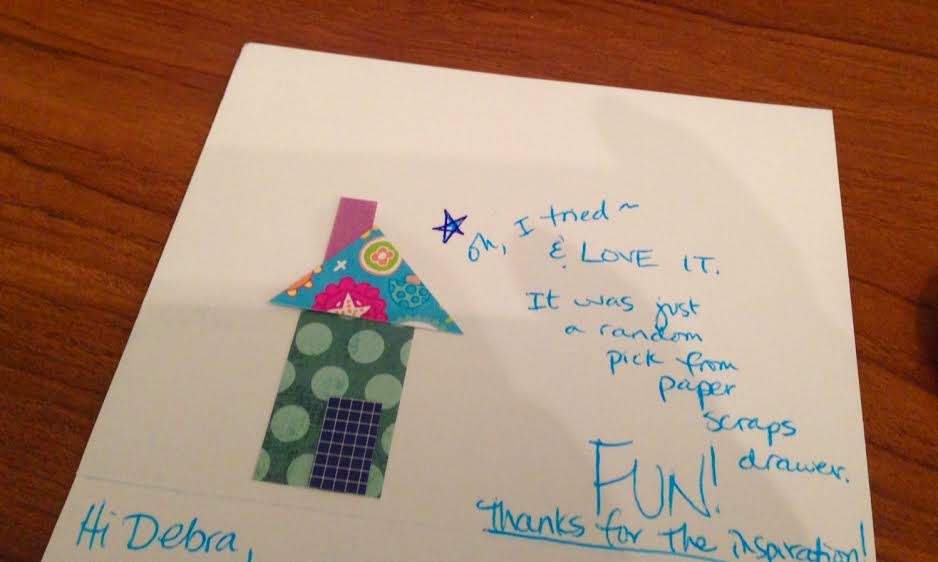 oh, I tried ~
& LOVE IT.
It was just
a random
pick from
paper
scraps
drawer.
FUN!
Thanks for the inspiration!
Hi Debra,